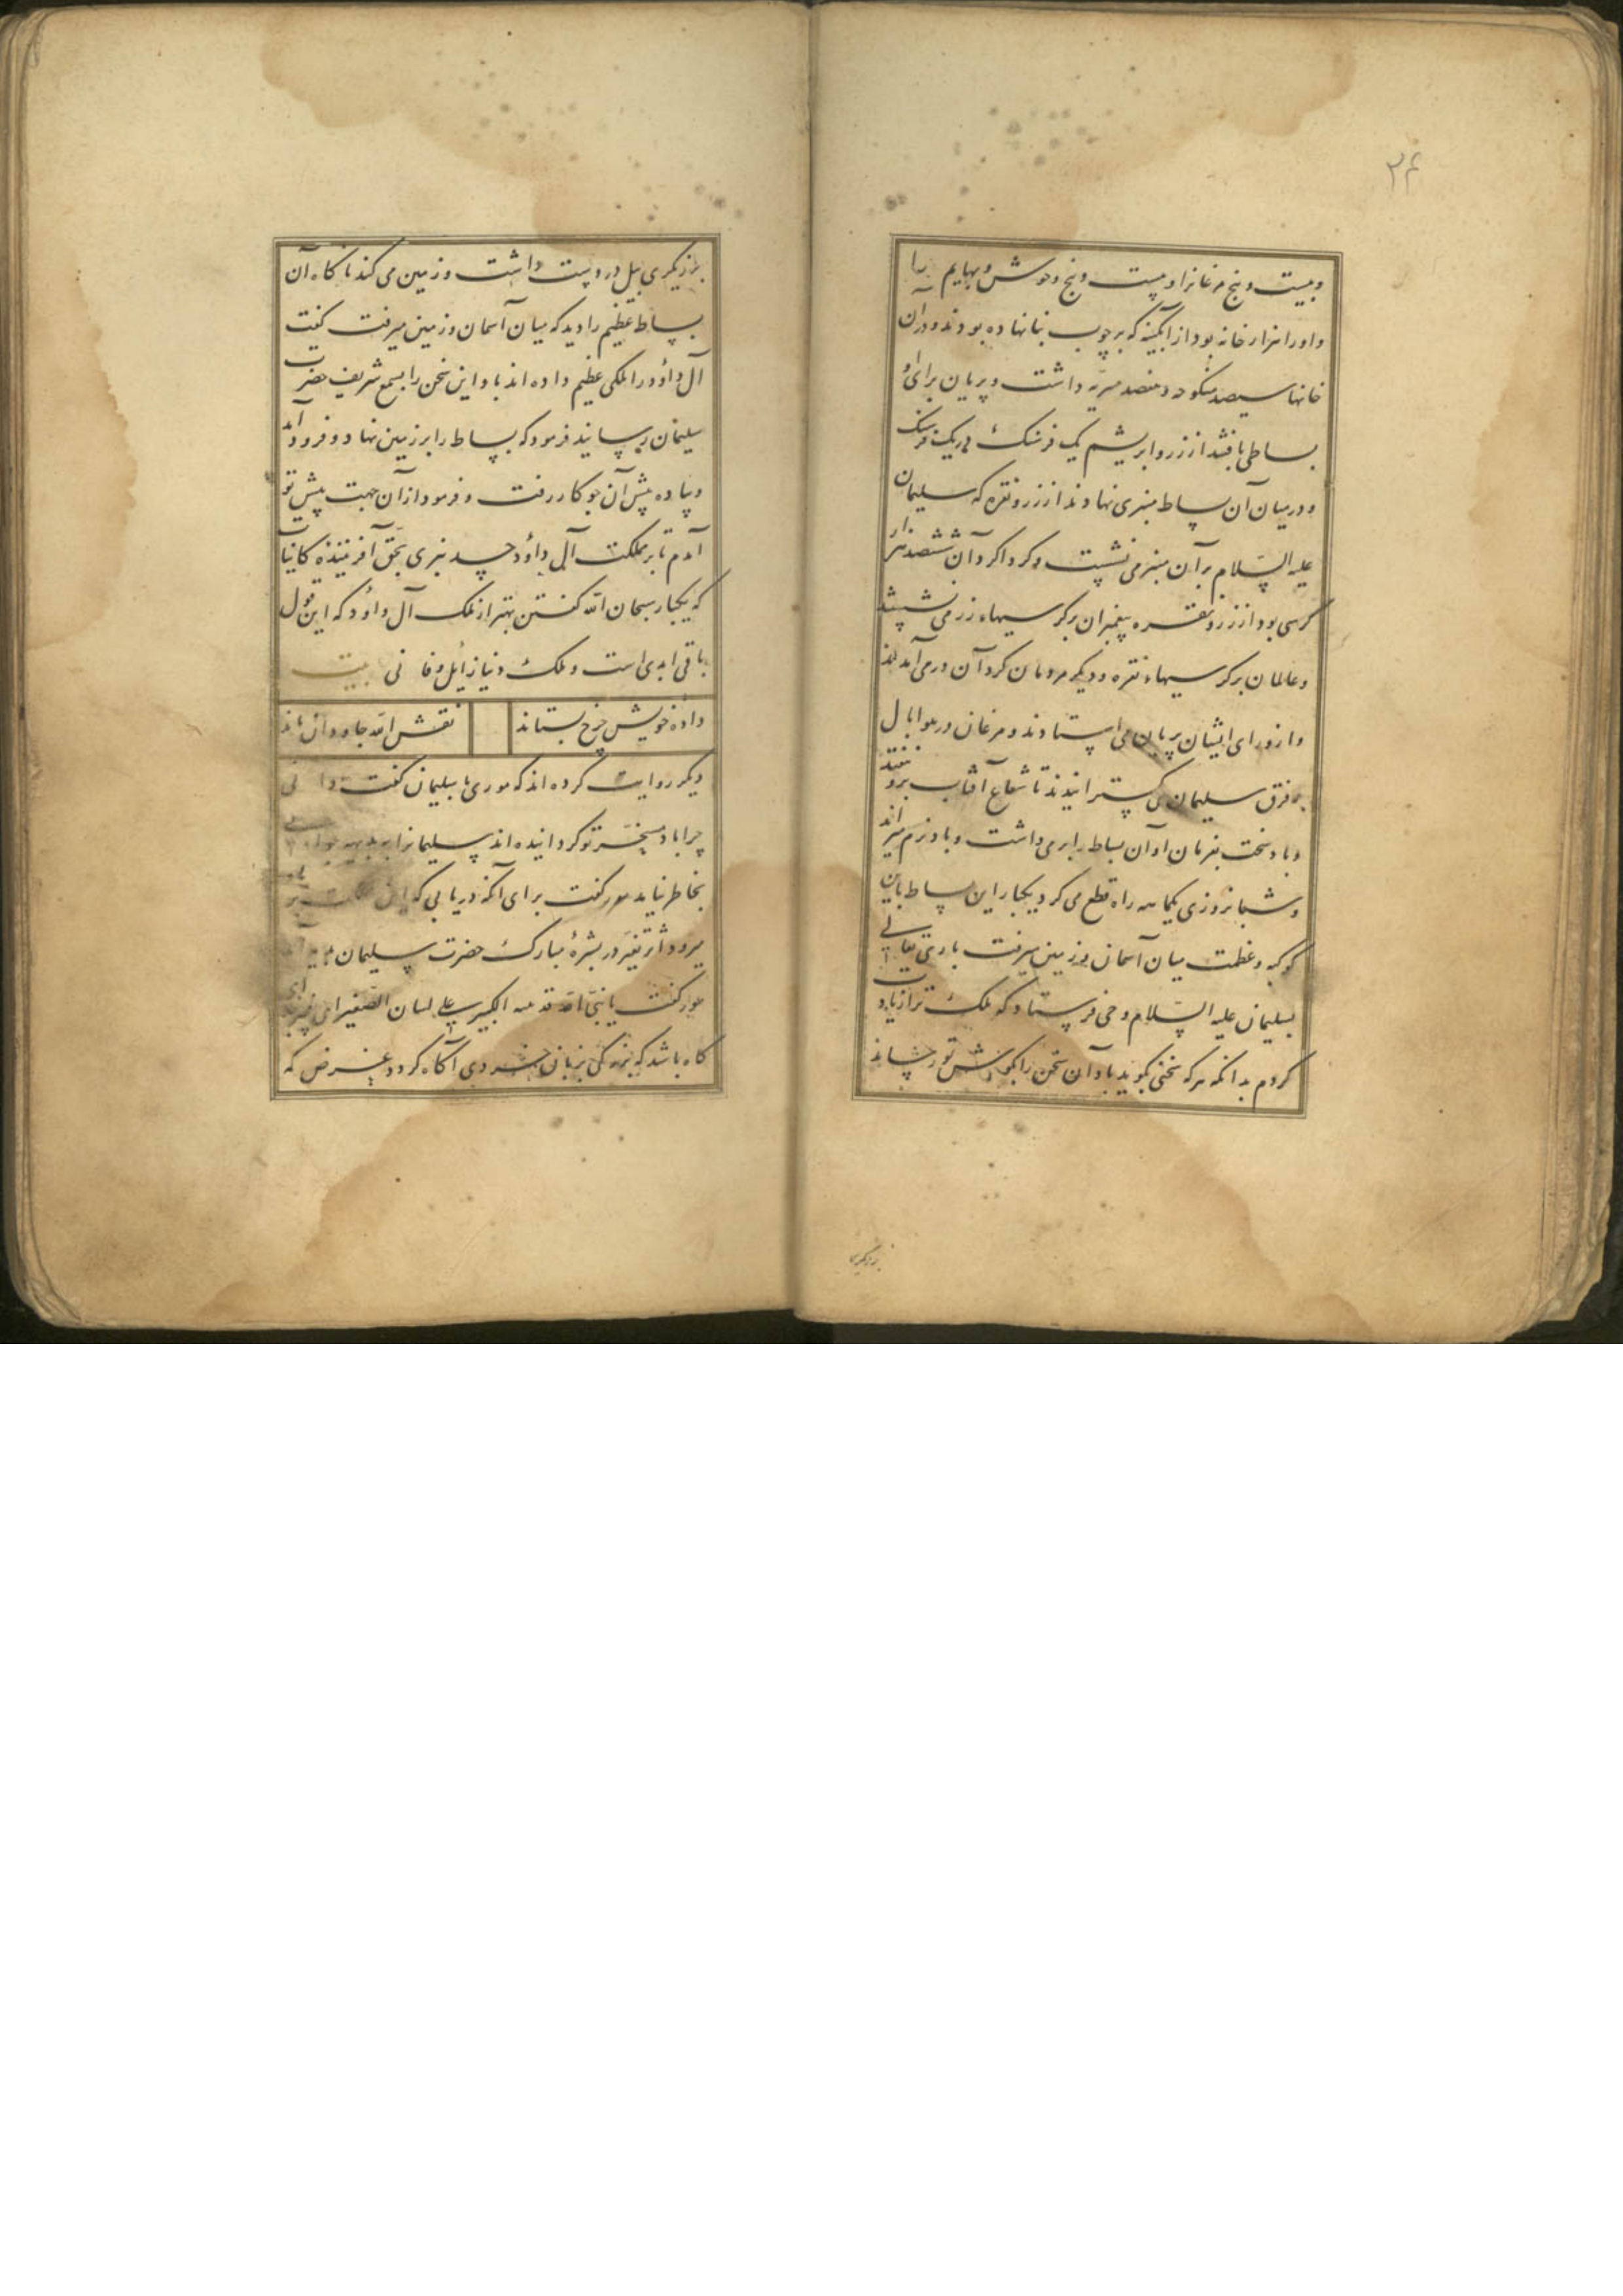 ۲۴
و بیست و پنج مرغانرا و بیست و پنج وحوش و بهایم را
و او را هزار خانه بود از آبگینه که بر چوب بنا نهاده بودند و در آن
خانها سیصد منکوحه و هفتصد سریه داشت و پریان برای او
بساطی بافتند از زر و ابریشم یک فرسنگ در یک فرسنگ
و در میان آن بساط منبری نهادند از زر و نقره که سلیمان
علیه السّلام بر آن منبر می نشست و کرداکرد آن ششصد هزار
کرسی بود از زر و نقره پیغمبران بر کرسیهاء زر می نشستند
و عالمان بر کرسیهاء نقره و دیکر مردمان کرد آن در می آمدند
و از ورای ایشان پریان می استادند و مرغان در هوا بال
بر فرق سلیمان می کسترانیدند تا شعاع آفتاب برو نیفتد
و باد سخت بفرمان او آن بساط را بر می داشت و باد نرم میراند
و شبانروزی یکماهه راه قطع می کرد یکبار این بساط باین
کوکبه و عظمت میان آسمان و زمین میرفت باری تعالی
بسلیمان علیه السّلام وحی فرستاد که ملک ترا زیاده
کردم بدانکه هر که سخنی بکوید باد آن سخن را بکوش تو رساند
برزیکری
برزیکری بیل در دست داشت و زمین می کند ناکاه آن
بساط عظیم را دید که میان آسمان و زمین میرفت کفت
آل داؤد را ملکی عظیم داده اند باد این سخن را بسمع شریف حضرت
سلیمان رسانید فرمود که بساط را بر زمین نهاد و فرود آمد
و پیاده پیش آن جو کار رفت و فرمود از آن جهت پیش تو
آمدم تا بر مملکت آل داؤد حسد نبری بحق آفریننده کاینات
که یکبار سبحان الله کفتن بهتر از ملک آل داؤد که این قول
باقی ابدی است و ملک دنیا زایل و فانی بیت
داده خویش چرخ بستاند نقش الله جاودان ماند
دیکر روایت کرده اند که موری با سلیمان کفت دانی
چرا باد مسخّر تو کردانیده اند سلیمانرا
بخاطر نیامد مور کفت برای آنکه دریابی که این مملکت بر باد
میرود اثر تغیّر در بشرهٔ مبارک حضرت سلیمان
مور کفت یا نبیّ الله قد الکبیر علی لسان الصّغیر
کاه باشد که بزرکی بزبان خردی آکاه کردد غرض که